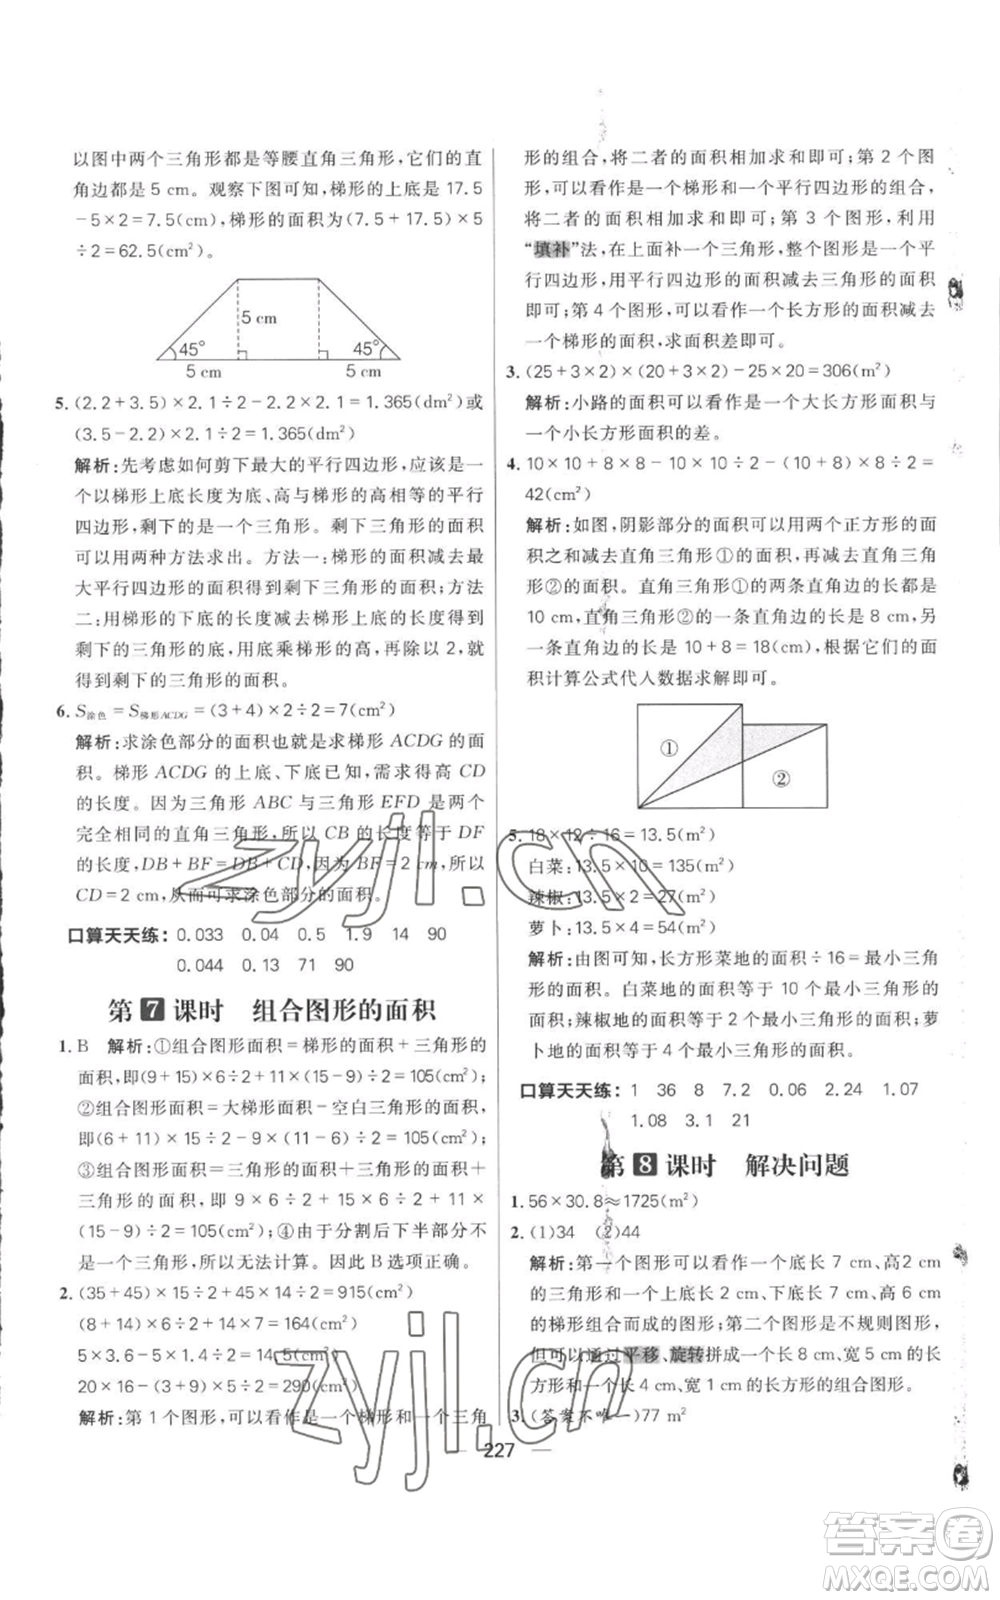 以图中两个三角形都是等腰直角三角形,它们的直
角边都是 5 cm。观察下图可知,梯形的上底是 17.5
-5×2=7.5(cm),梯形的面积为(7.5+17.5)×5
÷2=62.5(cm²)。
5 cm
45°
45°
5 cm
5 cm
5. (2.2+3.5)×2.1÷2-2.2×2.1=1.365(dm²)或
(3.5-2.2)×2.1÷2=1.365(dm²)
解析:先考虑如何剪下最大的平行四边形,应该是一
个以梯形上底长度为底、高与梯形的高相等的平行
四边形,剩下的是一个三角形。剩下三角形的面积
可以用两种方法求出。方法一:梯形的面积减去最
大平行四边形的面积得到剩下三角形的面积;方法
二:用梯形的下底的长度减去梯形上底的长度得到
剩下的三角形的底,用底乘梯形的高,再除以 2,就
得到剩下的三角形的面积。
6. S涂色=S梯形ACDG=(3+4)×2÷2=7(cm²)
解析:求涂色部分的面积也就是求梯形 ACDG 的面
积。梯形 ACDG 的上底、下底已知,需求得高 CD
的长度。因为三角形 ABC 与三角形 EFD 是两个
完全相同的直角三角形,所以 CB 的长度等于 DF
的长度,DB+BF=DB+CD,因为 BF=2 cm,所以
CD=2 cm,从而可求涂色部分的面积。
口算天天练: 0.033 0.04 0.5 1.9 14 90
0.044 0.13 71 90
第7课时 组合图形的面积
1. B 解析:①组合图形面积=梯形的面积+三角形的
面积,即(9+15)×6÷2+11×(15-9)÷2=105(cm²);
②组合图形面积=大梯形面积-空白三角形的面积,
即(6+11)×15÷2-9×(11-6)÷2=105(cm²);
③组合图形面积=三角形的面积+三角形的面积+
三角形的面积,即 9×6÷2+15×6÷2+11×
(15-9)÷2=105(cm²);④由于分割后下半部分不
是一个三角形,所以无法计算。因此 B 选项正确。
2. (35+45)×15÷2+45×14÷2=915(cm²)
(8+14)×6÷2+14×7=164(cm²)
5×3.6-5×1.4÷2=14.5(cm²)
20×16-(3+9)×5÷2=290(cm²)
解析:第 1 个图形,可以看作一个梯形和一个三角
形的组合,将二者的面积相加求和即可;第 2 个图
形,可以看作是一个梯形和一个平行四边形的组合,
将二者的面积相加求和即可;第 3 个图形,利用
“填补”法,在上面补一个三角形,整个图形是一个平
行四边形,用平行四边形的面积减去三角形的面积
即可;第 4 个图形,可以看作一个长方形的面积减去
一个梯形的面积,求面积差即可。
3. (25+3×2)×(20+3×2)-25×20=306(m²)
解析:小路的面积可以看作一个大长方形面积与
一个小长方形面积的差。
4. 10×10+8×8-10×10÷2-(10+8)×8÷2=
42(cm²)
解析:如图,阴影部分的面积可以用两个正方形的面
积之和减去直角三角形①的面积,再减去直角三角
形②的面积。直角三角形①的两条直角边的长都是
10 cm,直角三角形②的一条直角边的长是 8 cm,另
一条直角边的长是 10+8=18(cm),根据它们的面
积计算公式代入数据求解即可。
①
②
5. 18×12÷16=13.5(m²)
白菜:13.5×10=135(m²)
辣椒:13.5×2=27(m²)
萝卜:13.5×4=54(m²)
解析:由图可知,长方形菜地的面积÷16=最小三角
形的面积。白菜地的面积等于 10 个最小三角形的
面积;辣椒地的面积等于 2 个最小三角形的面积;萝
卜地的面积等于 4 个最小三角形的面积。
口算天天练: 1 36 8 7.2 0.06 2.24 1.07
1.08 3.1 21
第8课时 解决问题
1. 56×30.8≈1725(m²)
2. (1)34 (2)44
解析:第一个图形可以看作一个底长 7 cm、高2 cm
的三角形和一个上底长 2 cm、下底长 7 cm、高 6 cm
的梯形组合而成的图形;第二个图形是不规则图形,
但可以通过平移、旋转拼成一个长 8 cm、宽 5 cm 的长
方形和一个长 4 cm、宽 1 cm 的长方形的组合图形。
3. (答案不唯一)77 m²
227
zyjl.cn
zyjl.cn
答案卷
MXQE.COM